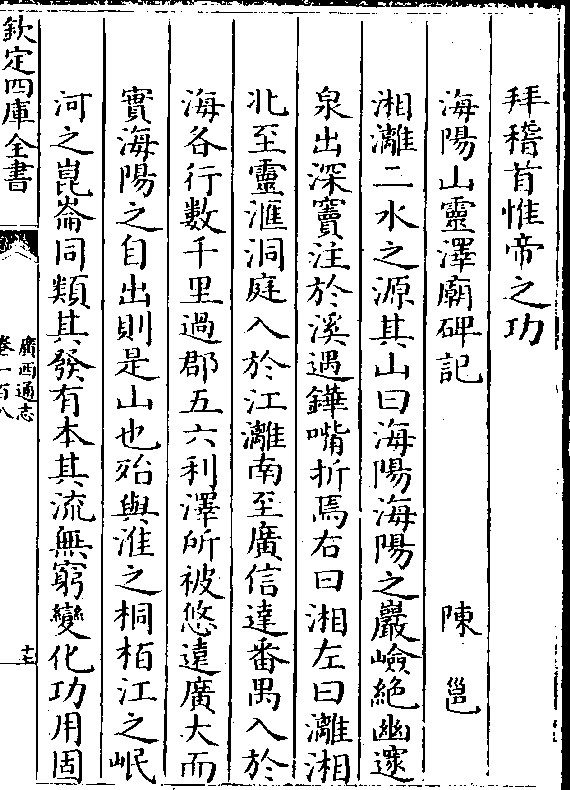 拜稽首惟帝之功
海陽山靈澤廟碑記 陳邕
湘灕二水之源其山曰海陽海陽之巖嶮絶幽邃
泉出深竇注於溪遇鏵嘴折焉右曰湘左曰灕湘
北至靈滙洞庭入於江灕南至廣信達番禺入於
海各行數千里過郡五六利澤所被悠遠廣大而
實海陽之自出則是山也殆與淮之桐栢江之岷
河之崑崙同類其發有本其流無窮變化功用固
欽定四庫全書
廣西通志
卷一百八
十七